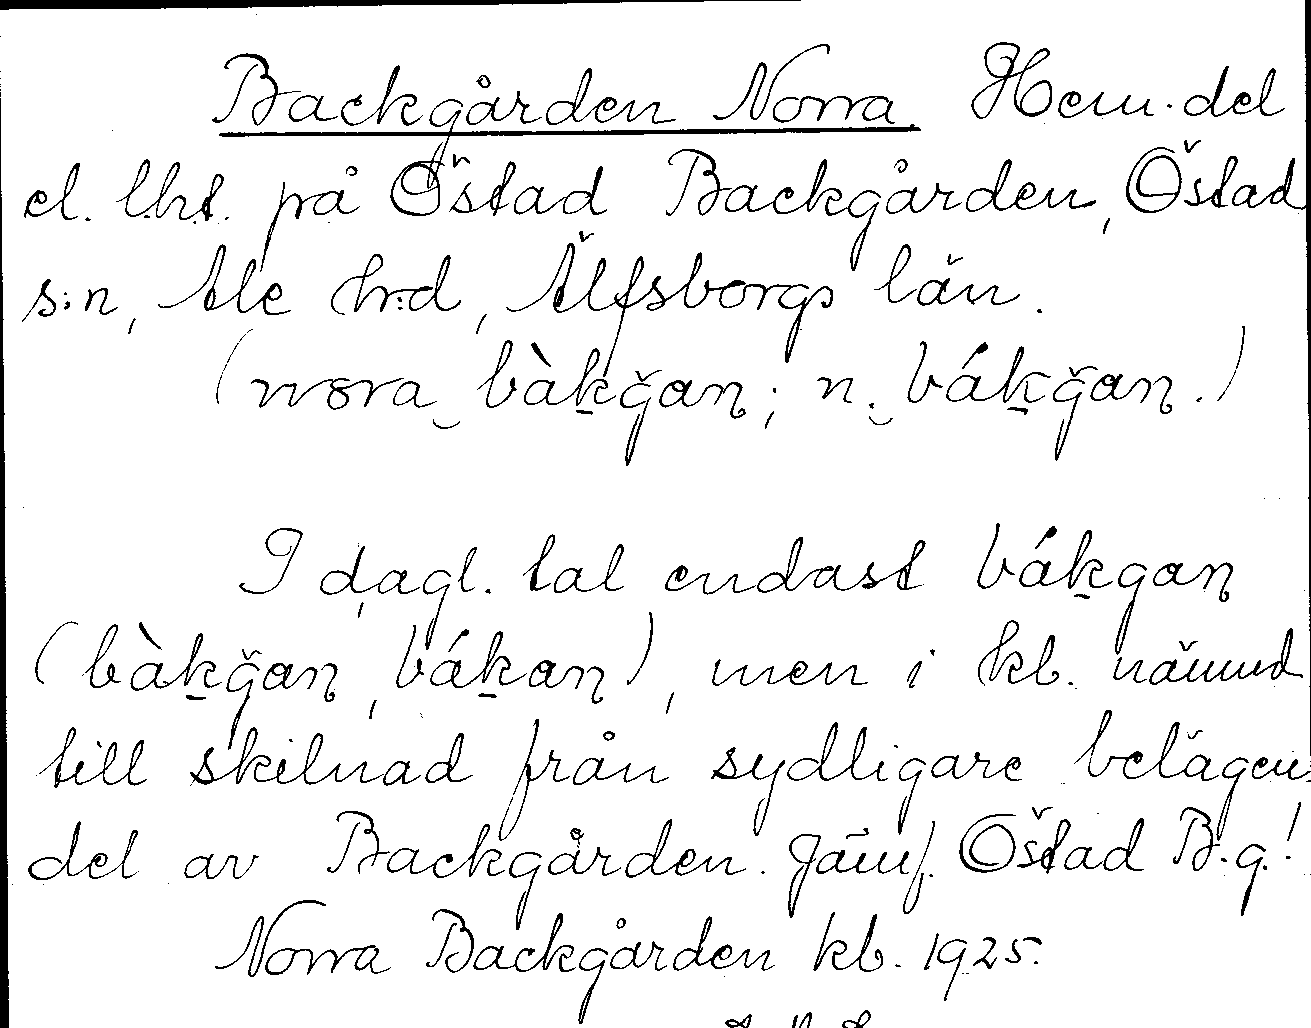 Backgården Norra. Hem.del
el. lht. på Östad Backgården, Östad
s:n, Ale hrd, Älfsborgs län.
(nora bàkğan; n. bákğan.)
I dagl. tal endast bákgan
(bàkğan, bákan), men i kb. nämnd
till skilnad från sydligare belägen
del av Backgården. Jämf. Östad B.g.!
Norra Backgården kb. 1925.